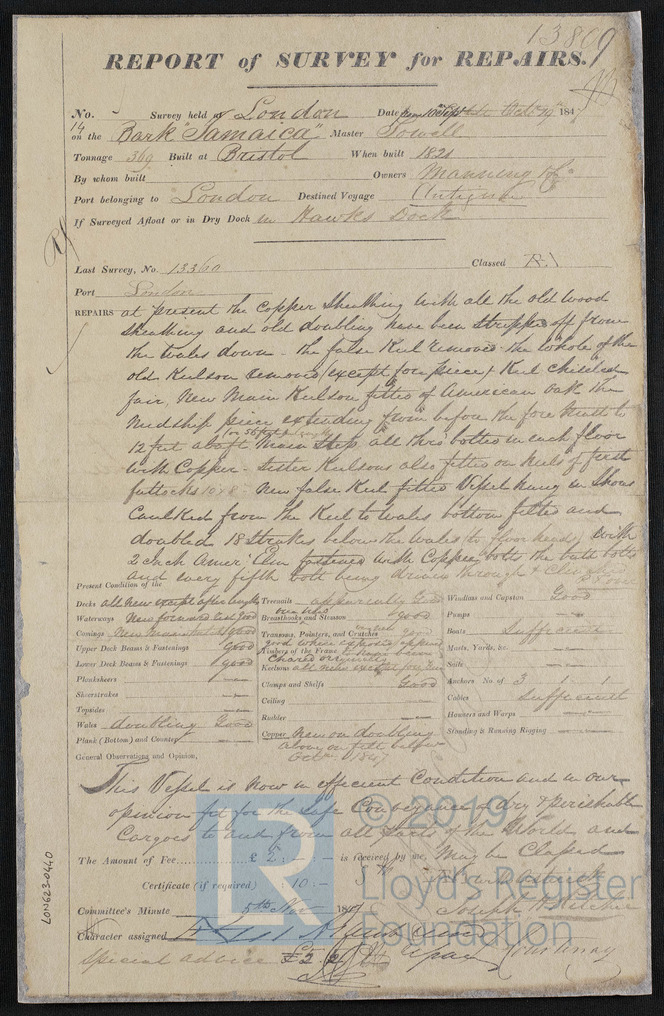 13869
REPORT of SURVEY for REPAIRS.
No. 14 Survey held at London Date from 10 Sept to Octr 29 1847
on the Bark "Jamaica" Master Lowell
Tonnage 369 Built at Bristol When built 1821
By whom built Owners Manning & Co
Port belonging to London Destined Voyage Antigua
If Surveyed Afloat or in Dry Dock in Hawks Dock
Last Survey, No. 13360 Classed
Port London
REPAIRS at present the Copper Sheathing with all the old wood
sheathing and old doubling have been stripped off from
the Wales down - the false Keel removed the whole of the
old Keelson removed (except fore piece) & Keel chiseled
fair, New Main Keelson fitted of American Oak the
Midship piece extending from before the fore to
12 feet abaft Main Step all thro' bolted in each floor
with Copper - Sister Keelsons also fitted on heels of first
futtocks New false Keel fitted Vessel hung in Shores
Caulked from the Keel to Wales bottom fitted and
doubled 18 Strakes below the Wales to floor heads with
2 Inch Amer' Elm fastened with Copper bolts the butt bolts
and every fifth bolt being driven through &
Present Condition of the
Decks all new except after length Treenails apparently Good Windlass and Capstan Good
Waterways New forward rest good Breasthooks and Stemson good Pumps —
Comings New Main good Transoms, Pointers, and Crutches good Boats Sufficient
Upper Deck Beams & Fastenings good Timbers of the Frame good where exposed Masts, Yards, &c. —
Lower Deck Beams & Fastenings good Keelsons all new except fore Sails —
Plansheers — Clamps and Shelfs Good Anchors No. of 3 1 1
Sheerstrakes — Ceiling — Cables Sufficient
Topsides — Rudder — Hawsers and Warps —
Wales doubling Good Copper New on doubling Standing & Running Rigging —
Plank (Bottom) and Counter — above on felt below
General Observations and Opinion, Octr 1847
This Vessel is now in efficient Condition and in our
opinion fit for the safe Conveyance of dry & perishable
Cargoes to and from all parts of the World and
The Amount of Fee £ 2 : - : - is received by me, May be Classed
Certificate (if required) : 10 : -
Committee's Minute 5th Nov 1847 Joseph
Character assigned
Special advice £2. 2
LON623-0440
© 2019
Lloyd's Register
Foundation
LR